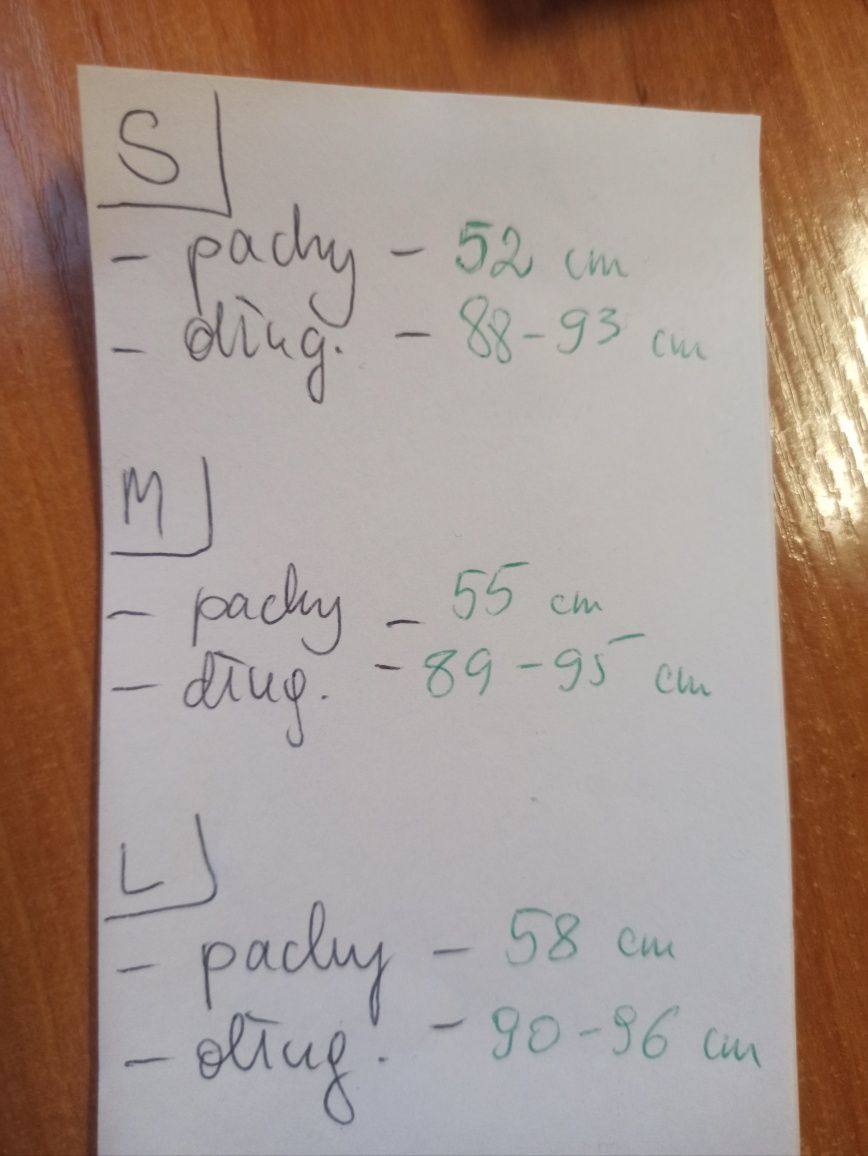 S
- pachy - 52 cm
- dług. - 88-93 cm
M
- pachy - 55 cm
- dług. - 89-95 cm
L
- pachy - 58 cm
- dług. - 90-96 cm